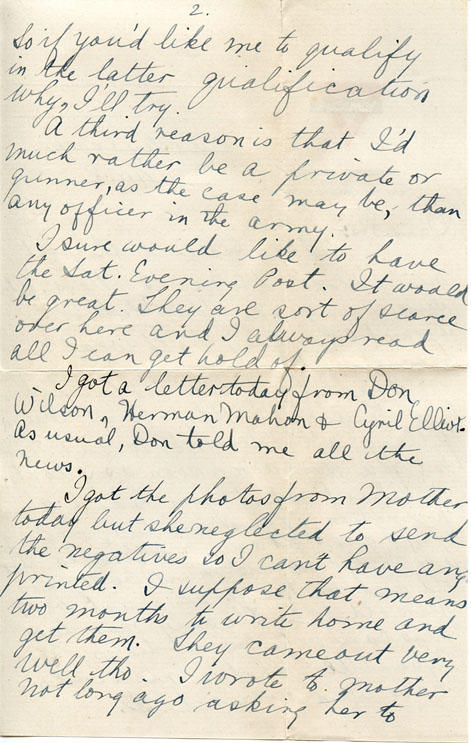 2.
So if you'd like me to qualify
in the latter qualification
why, I'll try.
A third reason is that I'd
much rather be a private or
gunner, as the case may be, than
any officer in the army.
I sure would like to have
the Sat. Evening Post. It would
be great. They are sort of scarce
over here and I always read
all I can get hold of.
I got a letter today from Don
Wilson, Herman Mahon & Cyril Elliot.
As usual, Don told me all the
news.
I got the photos from Mother
today but she neglected to send
the negatives so I can't have any
printed. I suppose that means
two months to write home and
get them. They came out very
well tho. I wrote to mother
not long ago asking her to